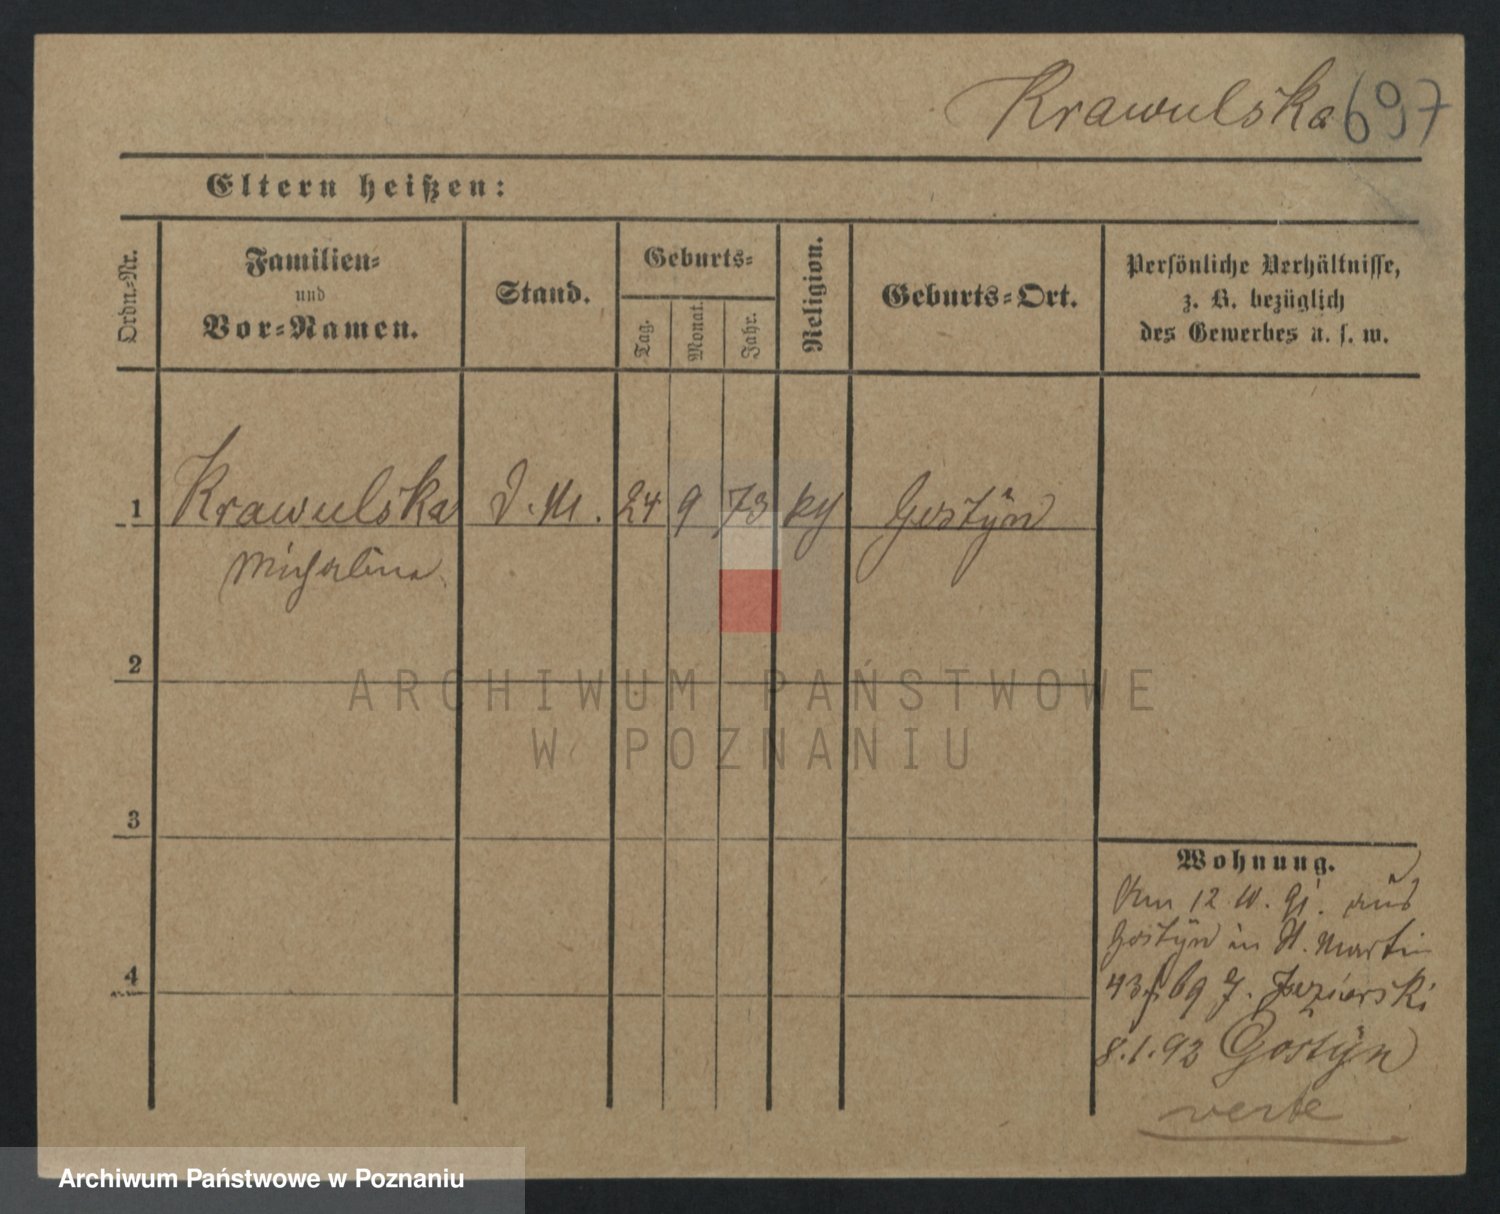 Krawulska 697
Eltern heißen:
Ordn.-Nr.
Familien-
und
Vor-Namen.
Stand.
Geburts-
Tag.
Monat.
Jahr.
Religion.
Geburts-Ort.
Persönliche Verhältnisse,
z. B. bezüglich
des Gewerbes u. s. w.
1 Krawulska D. M. 24 9 73 kg Gostÿn
Michalina
2
ARCHIWUM PAŃSTWOWE
W POZNANIU
3
4
Wohnung.
12. 10. 91. aus
Gostÿn in St. Martin
43 b 69 J. Jezierski
8.1.93 Gostÿn
verte
Archiwum Państwowe w Poznaniu